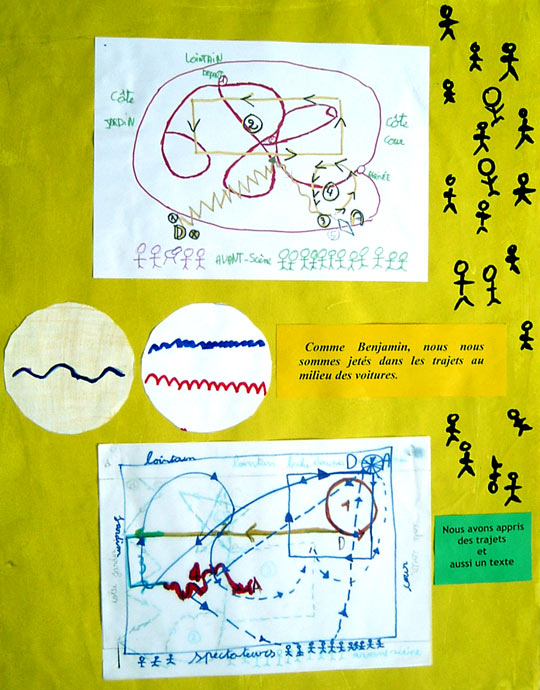 LOINTAIN
DEPART
Côté
JARDIN
2
Côté
Cour
4
3
D
AVANT-Scène
Comme Benjamin, nous nous
sommes jetés dans les trajets au
milieu des voitures.
lointain
D
A
jardin
1
D
A
cour
spectateurs
Nous avons appris
des trajets
et
aussi un texte